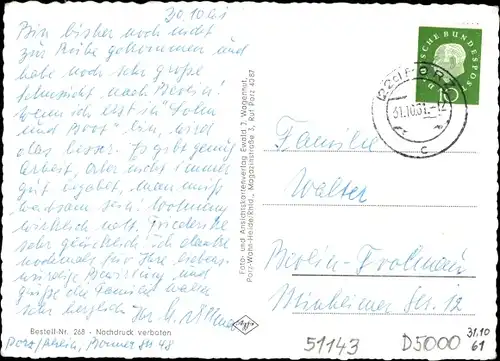 30.10.61
Bin bisher noch nicht
zur Ruhe gekommen und
habe noch sehr große
Sehnsucht nach Berlin!
Wenn ich erst in "Lohn
und Brot" bin, wird
alles besser. Es gibt genug
Arbeit, aber nicht immer
gut, man muß
Wohnung
nett. Friederike
sehr glücklich. Ich danke
nochmals für Ihre liebens-
würdige Bewirtung und
grüße die Familie
sehr herzlich Ihr
Bestell-Nr. 268 - Nachdruck verboten
Porz/Rhein, Bonner Str 48
Foto- und Ansichtskartenverlag Ewald J. Wagenhot,
Porz-Wahn-Heide/Rhld., Magazinstraße 3, Ruf: Porz 4287
DEUTSCHE BUNDESPOST
10
(22c) PORZ
31.10.61.-12
c
Familie
Walter
Berlin-Frohnau
Str. 12
51143
D5000
31.10
61